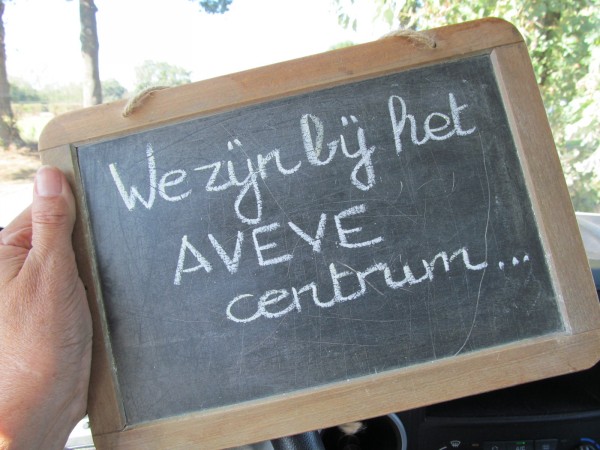 We zijn bij het
AVEVE
centrum...